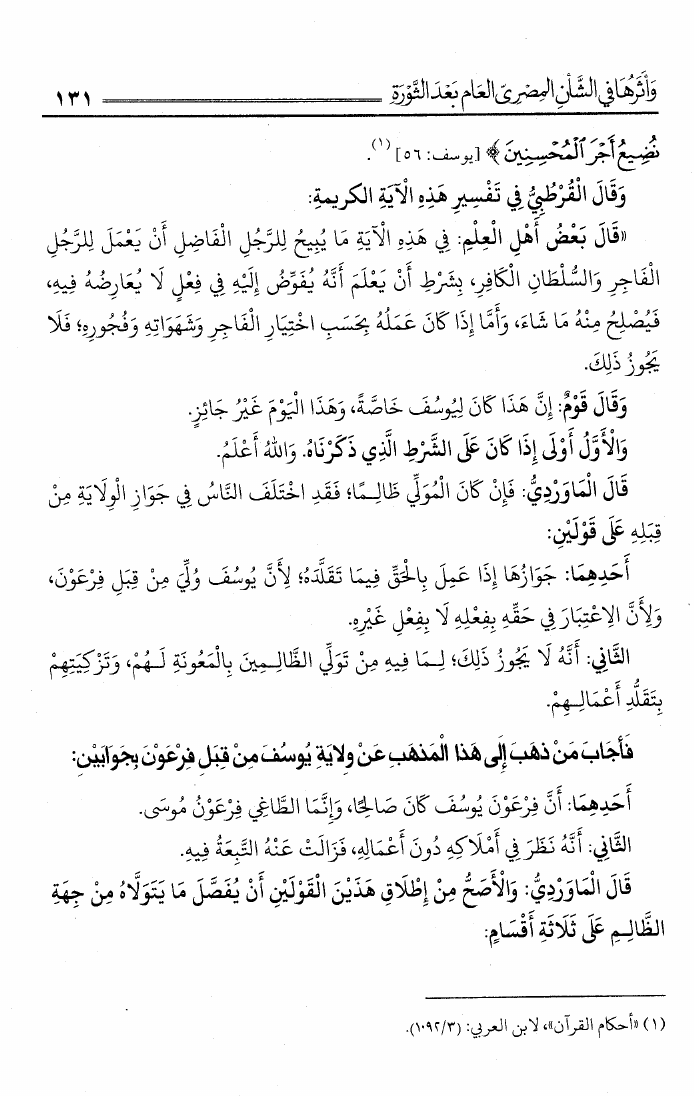 وَأَثَرُهَا فِي الشَّأْنِ الْمِصْرِيِّ الْعَام بَعْدَ الثَّوْرَةِ ١٣١
نُضِيعُ أَجْرَ ٱلْمُحْسِنِينَ ﴾ [يوسف: ٥٦] (١).
وَقَالَ الْقُرْطُبِيُّ فِي تَفْسِيرِ هَذِهِ الْآيَةِ الكريمةِ:
«قَالَ بَعْضُ أَهْلِ الْعِلْمِ: فِي هَذِهِ الْآيَةِ مَا يُبِيحُ لِلرَّجُلِ الْفَاضِلِ أَنْ يَعْمَلَ لِلرَّجُلِ
الْفَاجِرِ وَالسُّلْطَانِ الْكَافِرِ، بِشَرْطِ أَنْ يَعْلَمَ أَنَّهُ يُفَوِّضُ إِلَيْهِ فِي فِعْلٍ لَا يُعَارِضُهُ فِيهِ،
فَيُصْلِحُ مِنْهُ مَا شَاءَ، وَأَمَّا إِذَا كَانَ عَمَلُهُ بِحَسَبِ اخْتِيَارِ الْفَاجِرِ وَشَهَوَاتِهِ وَفُجُورِهِ؛ فَلَا
يَجُوزُ ذَلِكَ.
وَقَالَ قَوْمٌ: إِنَّ هَذَا كَانَ لِيُوسُفَ خَاصَّةً، وَهَذَا الْيَوْمَ غَيْرُ جَائِزٍ.
وَالْأَوَّلُ أَوْلَى إِذَا كَانَ عَلَى الشَّرْطِ الَّذِي ذَكَرْنَاهُ. وَاللهُ أَعْلَمُ.
قَالَ الْمَاوَرْدِيُّ: فَإِنْ كَانَ الْمُوَلِّي ظَالِمًا؛ فَقَدِ اخْتَلَفَ النَّاسُ فِي جَوَازِ الْوِلَايَةِ مِنْ
قِبَلِهِ عَلَى قَوْلَيْنِ:
أَحَدِهِمَا: جَوَازُهَا إِذَا عَمِلَ بِالْحَقِّ فِيمَا تَقَلَّدَهُ؛ لِأَنَّ يُوسُفَ وُلِّيَ مِنْ قِبَلِ فِرْعَوْنَ،
وَلِأَنَّ الِاعْتِبَارَ فِي حَقِّهِ بِفِعْلِهِ لَا بِفِعْلِ غَيْرِهِ.
الثَّانِي: أَنَّهُ لَا يَجُوزُ ذَلِكَ؛ لِمَا فِيهِ مِنْ تَوَلِّي الظَّالِمِينَ بِالْمَعُونَةِ لَهُمْ، وَتَزْكِيَتِهِمْ
بِتَقَلُّدِ أَعْمَالِهِمْ.
فَأَجَابَ مَنْ ذَهَبَ إِلَى هَذَا الْمَذْهَبِ عَنْ وِلَايَةِ يُوسُفَ مِنْ قِبَلِ فِرْعَوْنَ بِجَوَابَيْنِ:
أَحَدِهِمَا: أَنَّ فِرْعَوْنَ يُوسُفَ كَانَ صَالِحًا، وَإِنَّمَا الطَّاغِي فِرْعَوْنُ مُوسَى.
الثَّانِي: أَنَّهُ نَظَرَ فِي أَمْلَاكِهِ دُونَ أَعْمَالِهِ، فَزَالَتْ عَنْهُ التَّبِعَةُ فِيهِ.
قَالَ الْمَاوَرْدِيُّ: وَالْأَصَحُّ مِنْ إِطْلَاقِ هَذَيْنِ الْقَوْلَيْنِ أَنْ يُفَصَّلَ مَا يَتَوَلَّاهُ مِنْ جِهَةِ
الظَّالِمِ عَلَى ثَلَاثَةِ أَقْسَامٍ:
(١) «أحكام القرآن»، لابن العربي: (١٠٩٢/٣).